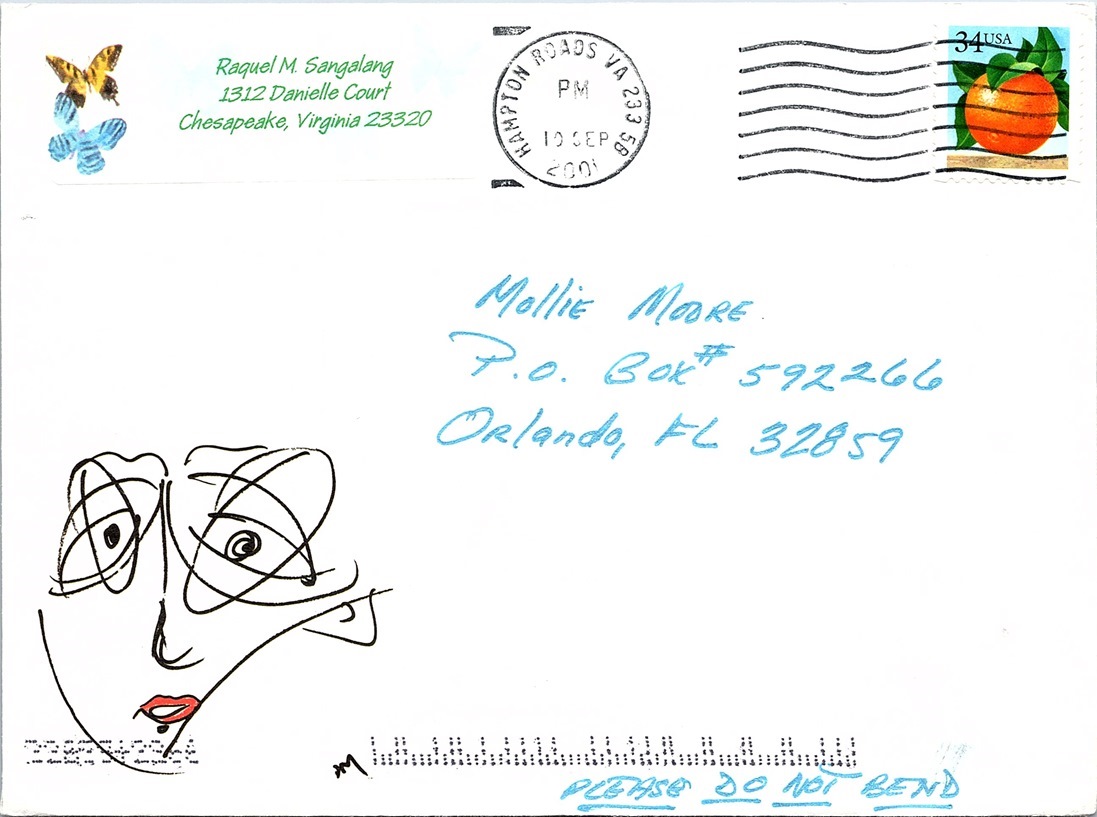 Raquel M. Sangalang
1312 Danielle Court
Chesapeake, Virginia 23320
HAMPTON ROADS VA 233 5B
PM
10 SEP
2001
34USA
Mollie Moore
P.O. Box# 592266
Orlando, FL 32859
PLEASE DO NOT BEND